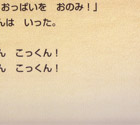 おっぱいを　おのみ！」
んは　いった。
ん　こっくん！
ん　こっくん！